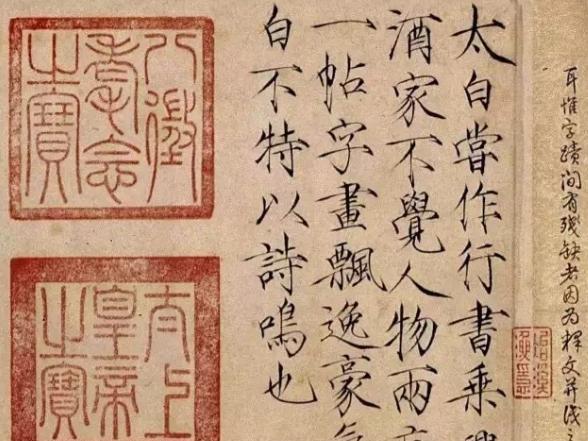 耳惟字蹟間有殘缺者因為釋文并識
太白嘗作行書乘
酒家不覺人物兩
一帖字畫飄逸豪氣
白不特以詩鳴也
八徵
耄念
之寶
太上
皇帝
之寶